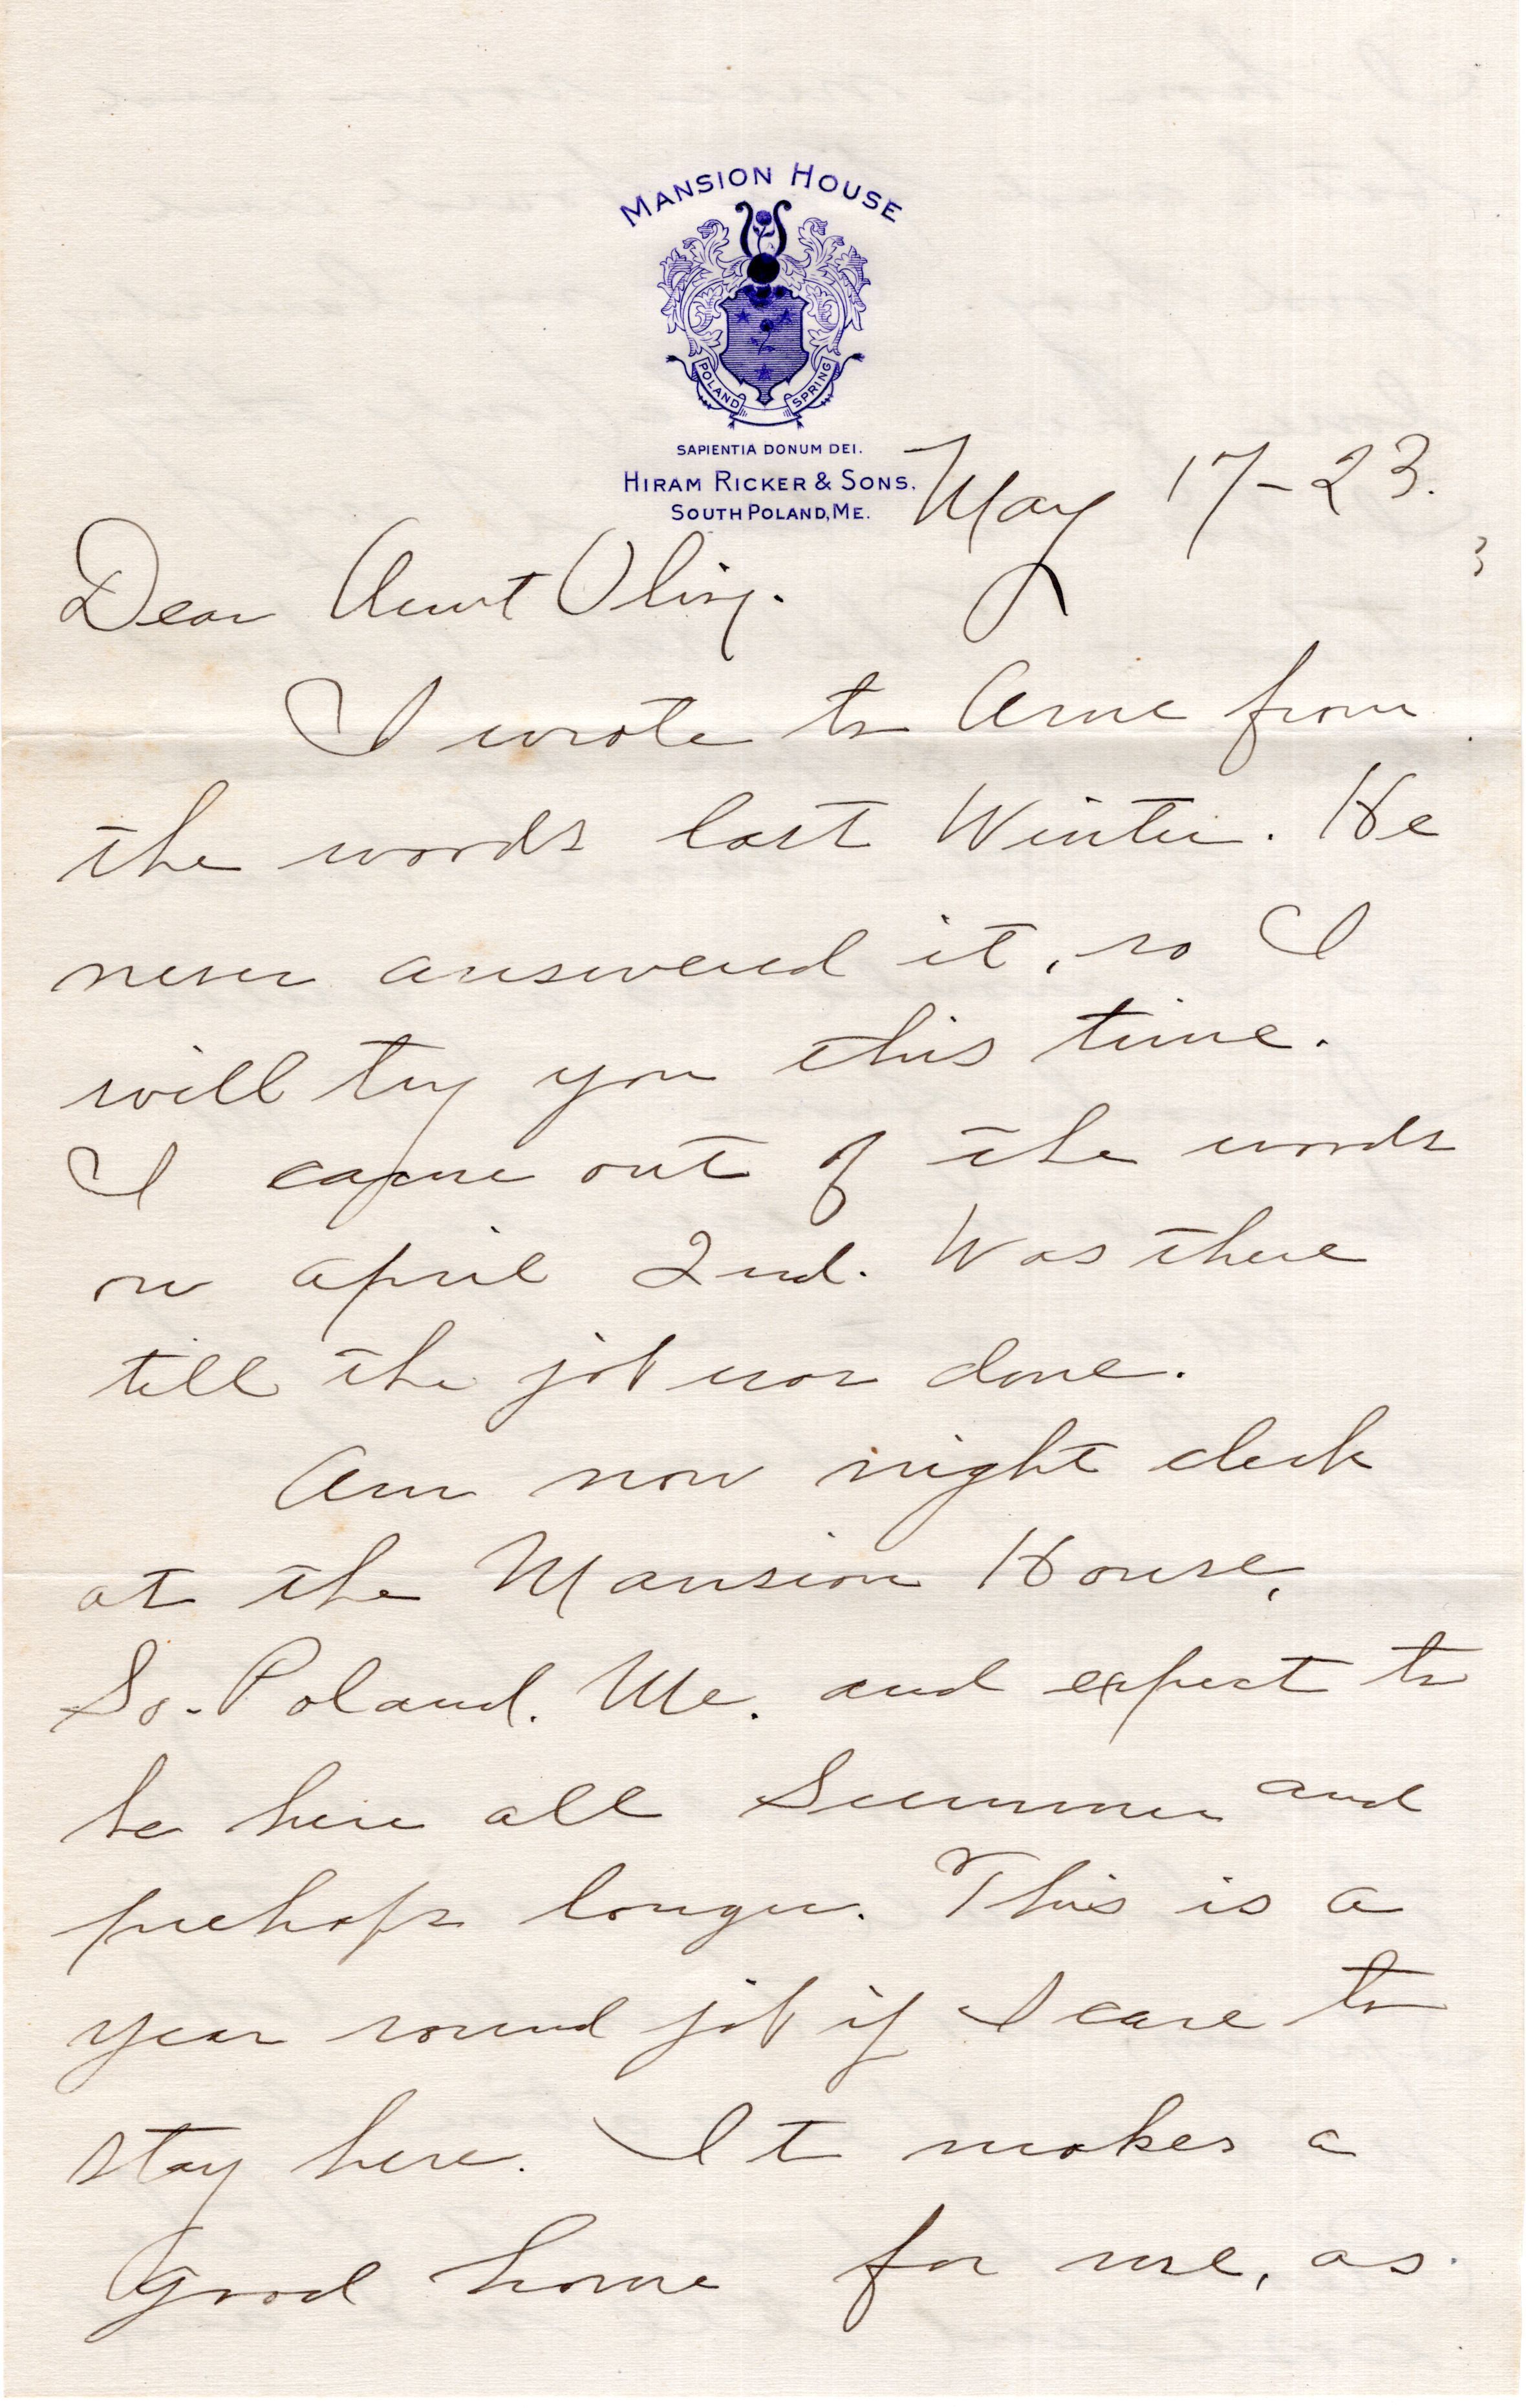 MANSION HOUSE
POLAND SPRING
SAPIENTIA DONUM DEI.
HIRAM RICKER & SONS.
SOUTH POLAND, ME.
May 17-23.
Dear Aunt
I wrote to Arne from
the woods last Winter. He
never answered it, so I
will try you this time.
I came out of the woods
on april 2nd. Was there
till the job was done.
Am now night clerk
at the Mansion House,
So. Poland. Me. and expect to
be here all Summer and
perhaps longer. This is a
year round job if I care to
stay here. It makes a
Good home for me, as